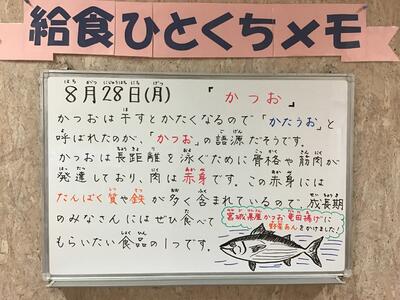 給食ひとくちメモ
8月28日(月) 「かつお」
かつおは干すとかたくなるので「かたうお」と
呼ばれたのが、「かつお」の語源だそうです。
かつおは長距離を泳ぐために骨格や筋肉が
発達しており、肉は赤身です。この赤身には
たんぱく質や鉄が多く含まれているので、成長期
のみなさんにはぜひ食べて
もらいたい食品の1つです。
宮城県産かつお竜田揚げに
野菜あんをかけました!